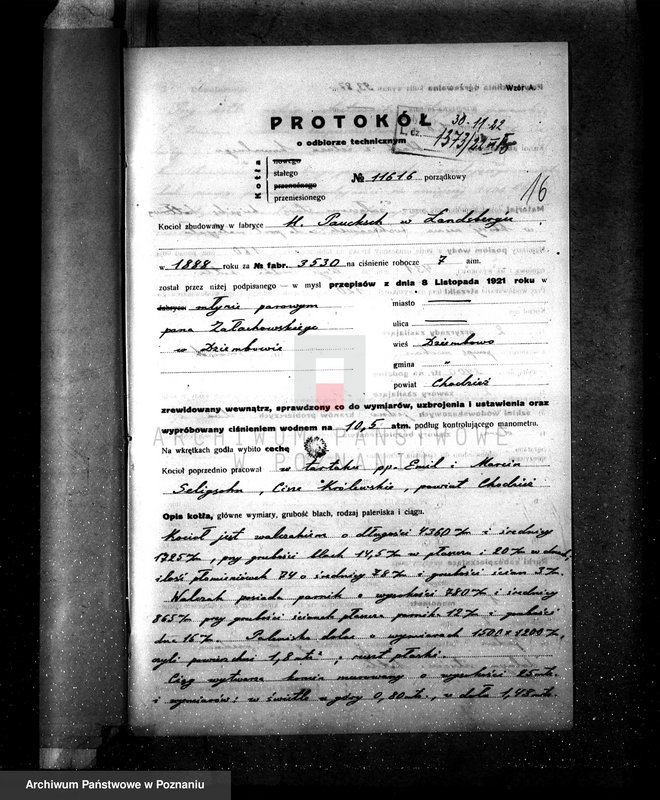 Wzór A.
PROTOKÓŁ
o odbiorze technicznym
30.11.22
L. dz. 1373/22
16
Kotła
nowego
stałego
przenośnego
przeniesionego
№ 11616 porządkowy
Kocioł zbudowany w fabryce H. Paucksch w Landsbergu
w 1888 roku za № fabr. 3530 na ciśnienie robocze 7 atm.
został przez niżej podpisanego — w myśl przepisów z dnia 8 Listopada 1921 roku w
fabryce młynie parowym
pana Załachowskiego
w Dziembowie
miasto
ulica
wieś Dziembowo
gmina "
powiat Chodzież
zrewidowany wewnątrz, sprawdzony co do wymiarów, uzbrojenia i ustawienia oraz
wypróbowany ciśnieniem wodnem na 10,5 atm. podług kontrolującego manometru.
Na wkrętkach godła wybito cechę
Kocioł poprzednio pracował w tartaku pp. Emil i Marcin
Seligsohn, Cisze Królewskie, powiat Chodzież
Opis kotła, główne wymiary, grubość blach, rodzaj paleniska i ciągu.
Kocioł jest walczakiem o długości 4360 m/m i średnicy
1725 m/m, przy grubości blach 14,5 m/m w płaszczu i 20 m/m w dnach,
ilość płomieniówek 74 o średnicy 78 m/m i grubości ścian 3 m/m.
Walczak posiada parnik o wysokości 780 m/m i średnicy
865 m/m przy grubości ścianek płaszcza parnik. 12 m/m i grubości
dna 16 m/m. Palenisko dolne o wymiarach 1500 × 1200 m/m,
czyli powierzchni 1,8 mt²; ruszt płaski.
Ciąg wytwarza komin murowany o wysokości 25 mt.
i wymiarów: w świetle u góry 0,80 mt., u dołu 1,48 mt.
ARCHIWUM PAŃSTWOWE
W POZNANIU
Archiwum Państwowe w Poznaniu